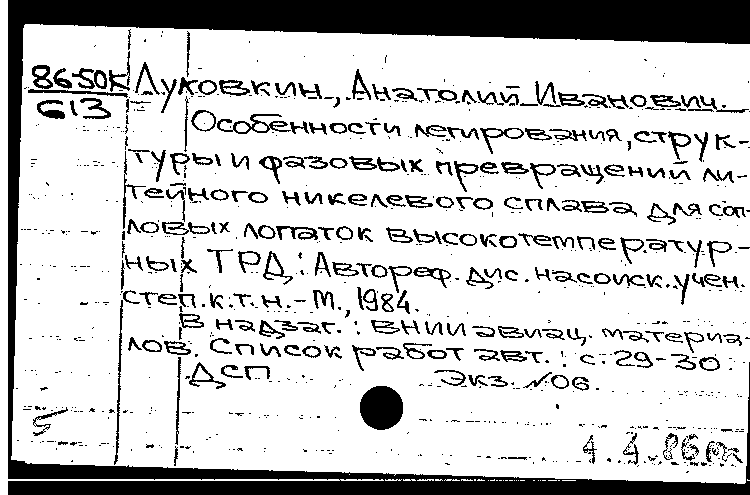 86-50К Луковкин, Анатолий Иванович.
613
Особенности легирования, струк-
туры и фазовых превращений ли-
тейного никелевого сплава для соп-
ловых лопаток высокотемператур-
ных ТРД.: Автореф. дис. на соиск. учен.
степ. к.т.н. - М., 1984.
В надзаг.: ВНИИ авиац. материа-
лов. Список работ авт.: с. 29-30.
ДСП Экз. №06.
5
4.4.86